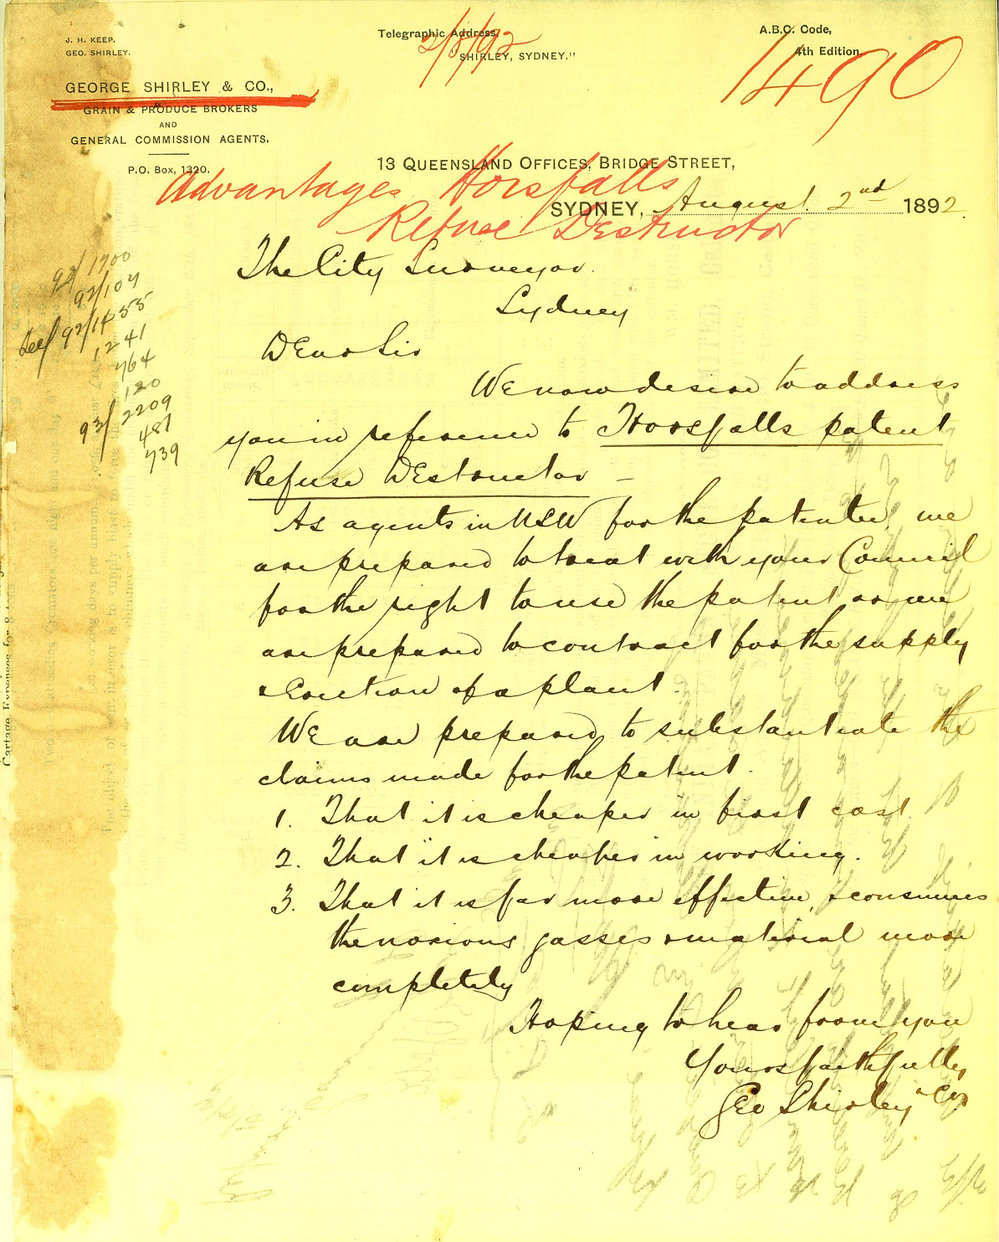 J. H. KEEP.
GEO. SHIRLEY.
Telegraphic Address,
"SHIRLEY, SYDNEY."
2/8/92
A.B.C. Code,
4th Edition.
1490
GEORGE SHIRLEY & CO.,
GRAIN & PRODUCE BROKERS
AND
GENERAL COMMISSION AGENTS.
P.O. Box, 1320.
13 QUEENSLAND OFFICES, BRIDGE STREET,
Advantages Horsfalls
Refuse Destructor
SYDNEY, August 2nd 1892.
92/1700
92/104
See/ 92/1455
1241
764
120
93/ 2209
487
739
The City Surveyor.
Sydney
Dear Sir
We now desire to address
you in reference to Horsfalls patent
Refuse Destructor –
As agents in NSW for the patentee, we
are prepared to treat with your Council
for the right to use the patent or we
are prepared to contract for the supply
& Erection of a plant.
We are prepared to substantiate the
claims made for the patent.
1. That it is cheaper in first cost.
2. That it is cheaper in working.
3. That it is far more effective, & consumes
the noxious gasses & material more
completely
Hoping to hear from you
Yours faithfully,
Geo Shirley & Co